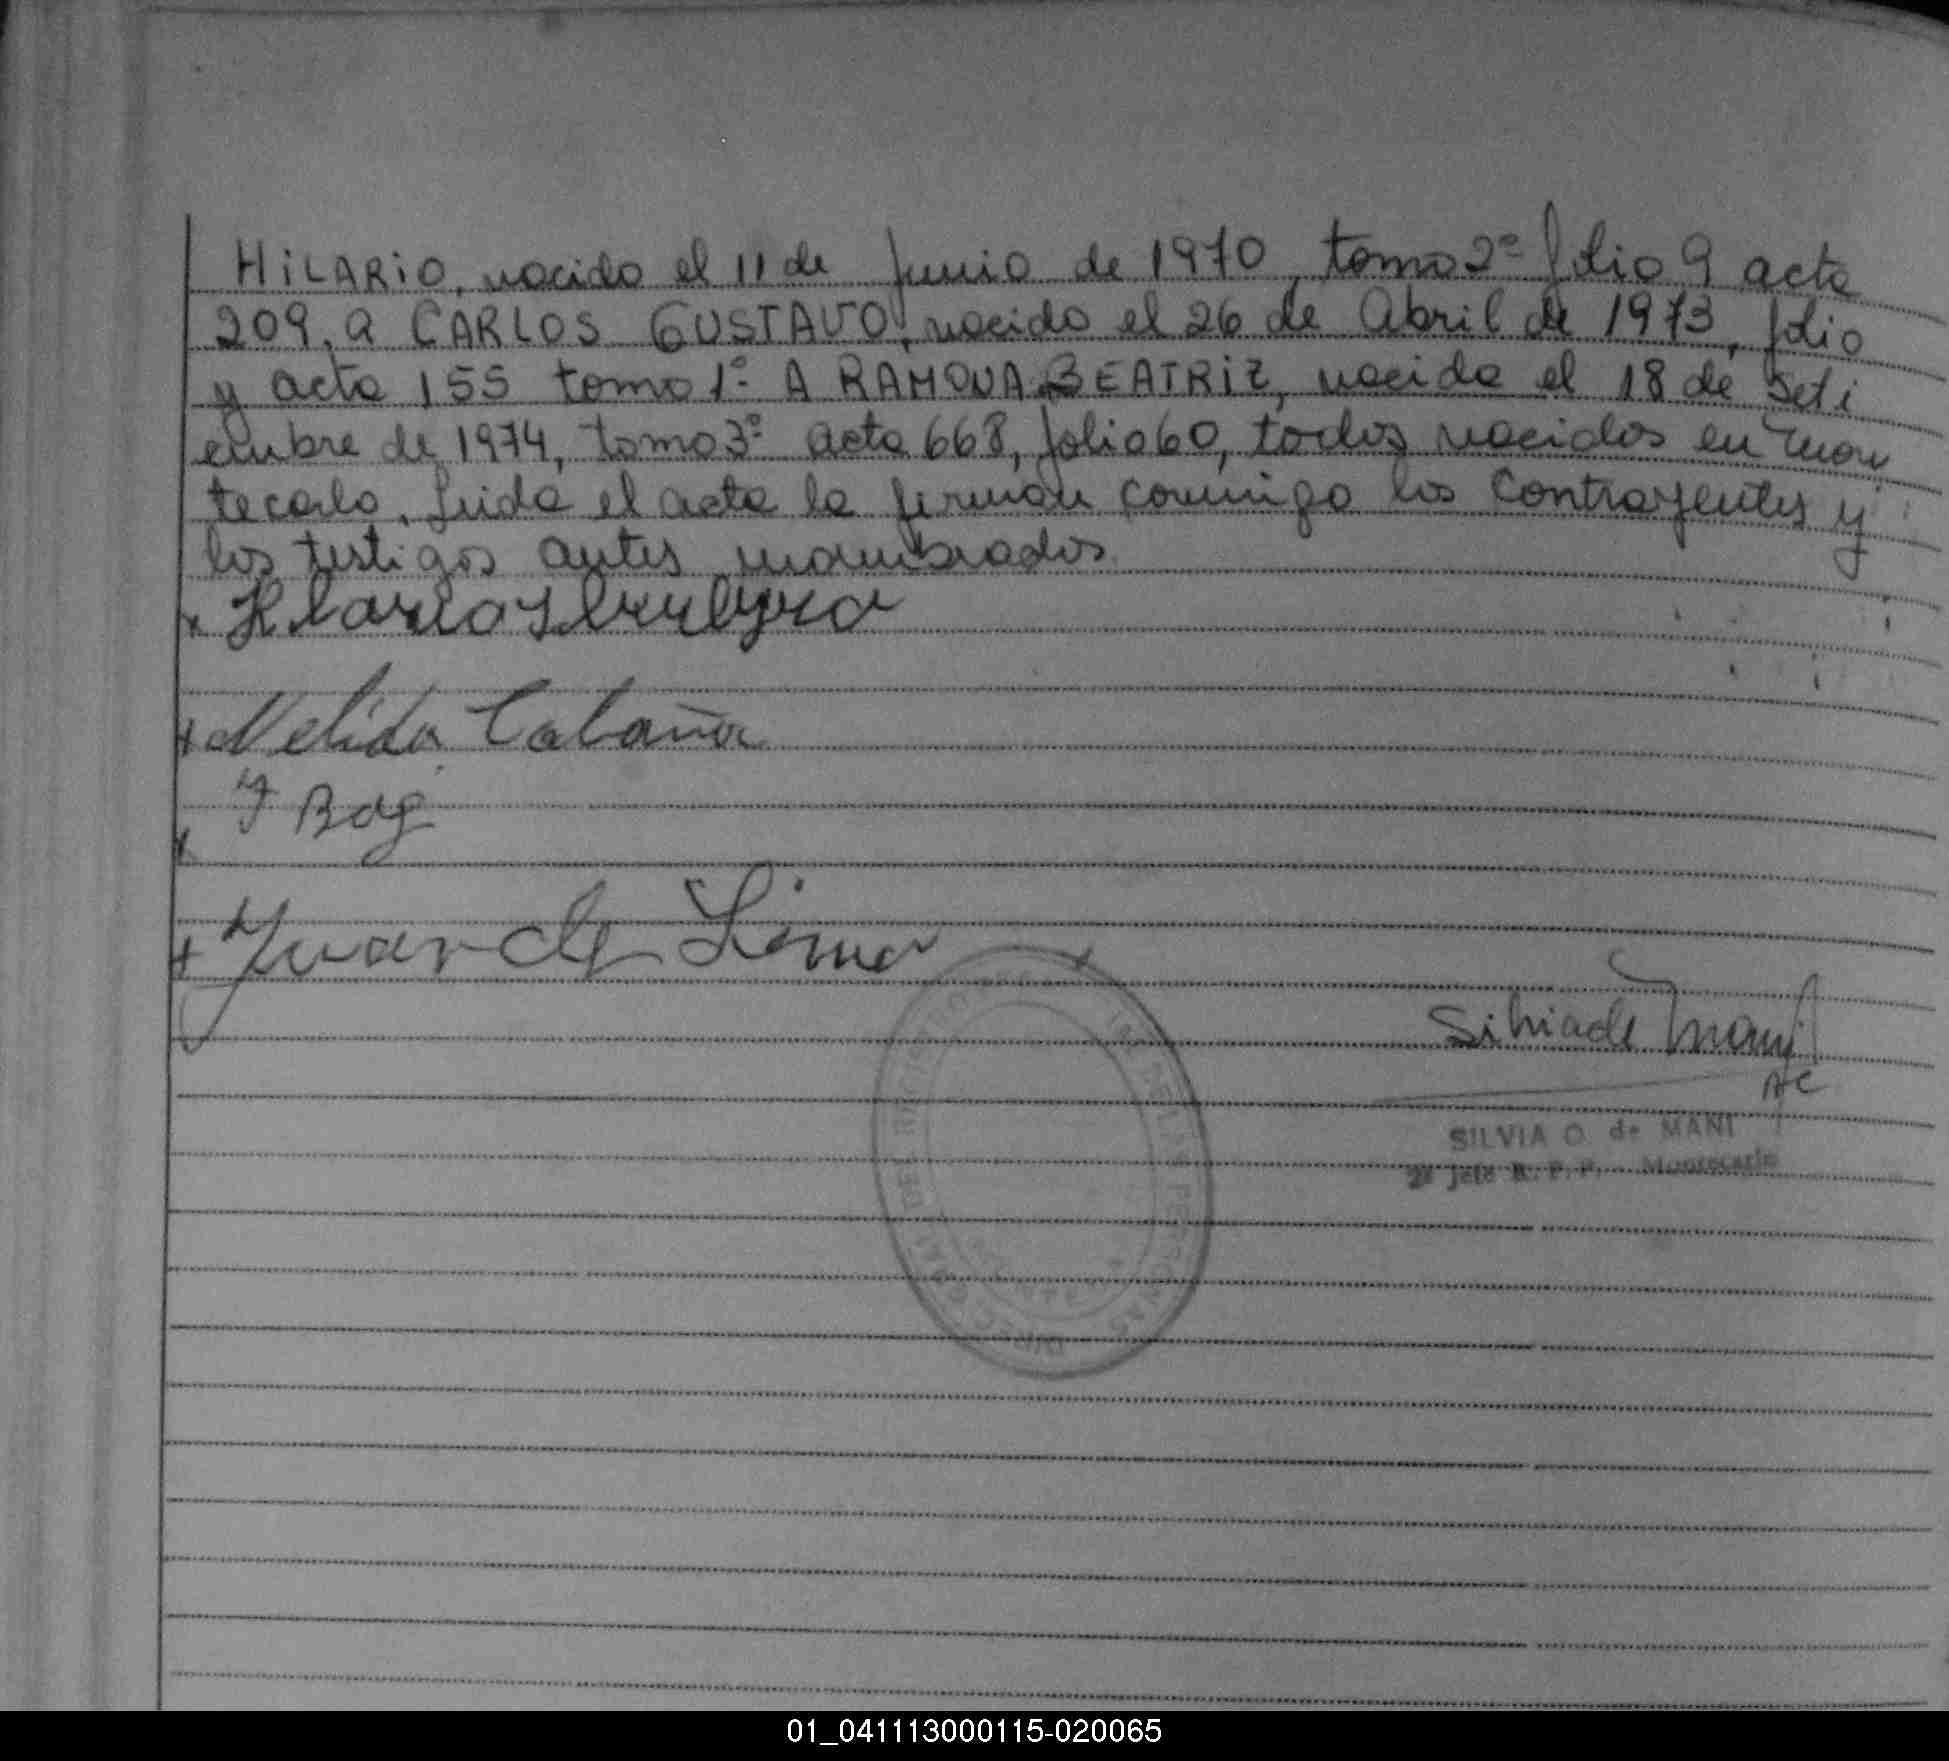 HILARIO, nacido el 11 de Junio de 1970, tomo 2º folio 9 acta
209, a CARLOS GUSTAVO, nacido el 26 de Abril de 1973, folio
y acta 155 tomo 1º. A RAMONA BEATRIZ, nacida el 18 de Seti
embre de 1974, tomo 3º acta 668, folio 60, todos nacidos en Mon
tecarlo. Leida el acta la firman conmigo los contrayentes y
los testigos antes nombrados
x
x Nelida Cabaña
x
x Juan de Lima
Silvia de Mani
SILVIA O. de MANI
2º Jefe R. P. P. - Montecarlo
01_041113000115-020065